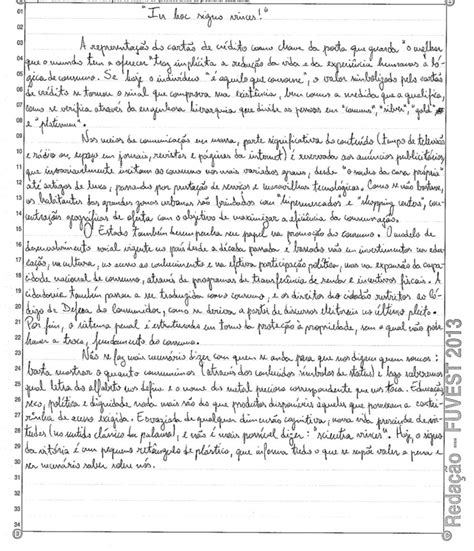 "In hoc signo vinces!"
A representação do cartão de crédito como chave da porta que guarda "o melhor
que o mundo tem a oferecer" traz implícita a redução da vida e da experiência humanas à ló-
gica de consumo. Se hoje o indivíduo "é aquele que consome", o valor simbolizado pelo cartão
de crédito se torna o sinal que comprova sua existência, bem como a medida que a qualifica,
como se verifica através da engenhosa hierarquia que divide as pessoas em "comuns", "silver", "gold"
e "platinum".
Nos meios de comunicação em massa, parte significativa do conteúdo (tempo de televisão
e rádio ou espaço em jornais, revistas e páginas da internet) é reservada aos anúncios publicitários,
que invariavelmente incitam ao consumo nos mais variados graus, desde "o sonho da casa própria"
até artigos de luxo, passando por prestação de serviços e maravilhas tecnológicas. Como se não bastasse,
os habitantes das grandes zonas urbanas são brindados com "hipermercados" e "shopping centers", con-
centrações geográficas de ofertas com o objetivo de maximizar a eficiência da consumação.
O Estado também desempenha seu papel na promoção do consumo. O modelo de
desenvolvimento social vigente no país desde a década passada é baseado não em investimentos na edu-
cação, na cultura, no acesso ao conhecimento e na efetiva participação política, mas na expansão da capa-
cidade nacional de consumo, através de programas de transferência de renda e incentivos fiscais. A
cidadania também passou a ser traduzida como consumo, e os direitos do cidadão restritos ao Có-
digo de Defesa do Consumidor, como se deriva a partir de discursos eleitorais no último pleito.
Por fim, o sistema penal é estruturado em torno da proteção à propriedade, sem a qual não pode
haver a troca, fundamento do consumo.
Não se faz mais necessário dizer com quem se anda para que nos digam quem somos:
basta mostrar o quanto consumimos (através dos conteúdos símbolos de status) e logo saberemos
qual letra do alfabeto nos define e o nome do metal precioso correspondente que nos toca. Educação,
sexo, política e dignidade nada mais são do que produtos disponíveis àqueles que possuem a cartei-
rinha de acesso exigida. Esvaziada de qualquer dimensão cognitiva, nossa vida prescinde de vir-
tudes (no sentido clássico da palavra), e não é mais possível dizer: "scientia vinces". Hoje, o signo
da vitória é um pequeno retângulo de plástico, que informa tudo o que se supõe valer a pena e
ser necessário saber sobre nós.
© Redação -- FUVEST 2013